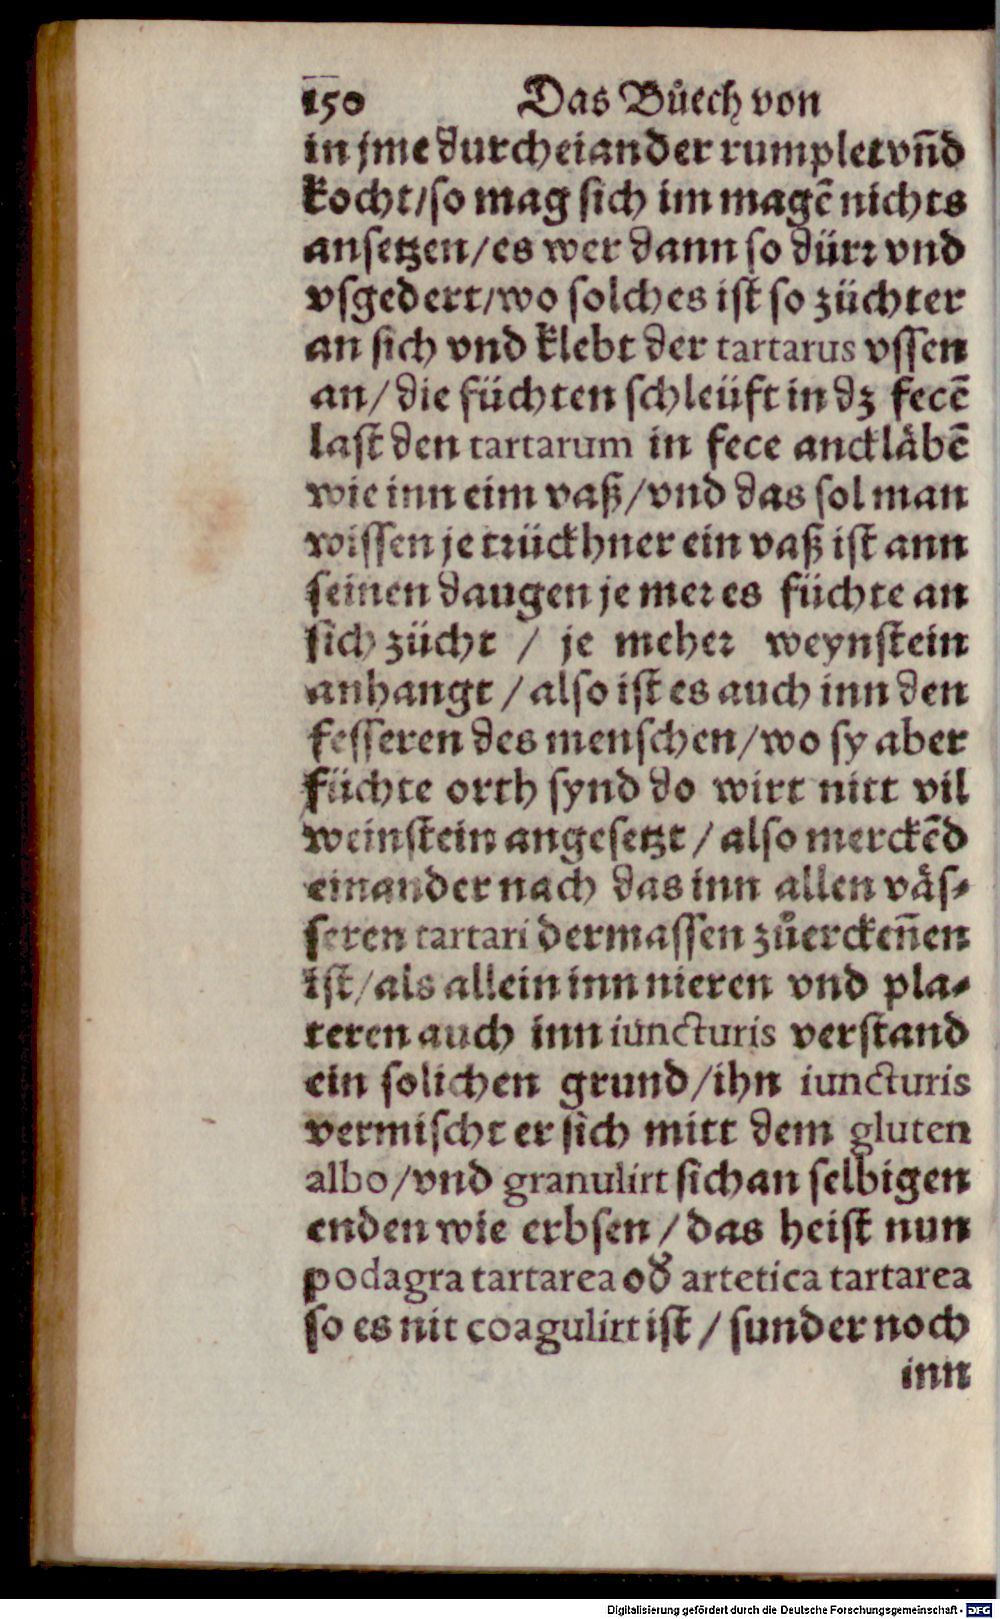 150 Das Bůech von
in jme durcheiander rumplet vn̄d
kocht/so mag sich im magē nichts
ansetzen/es wer dann so dürꝛ vnd
vsgedert/wo solches ist so züchter
an sich vnd klebt der tartarus vssen
an/die füchten schleüft in dz fecē
last den tartarum in fece anckläbē
wie inn eim vaß/vnd das sol man
wissen je trückhner ein vaß ist ann
seinen daugen je meꝛ es füchte an
sich zücht / je meheꝛ weynstein
anhangt / also ist es auch inn den
fesseren des menschen/wo sy aber
füchte orth synd do wirt nitt vil
weinstein angesetzt / also merckēd
einander nach das inn allen väs⸗
seren tartari dermassen zůerckēnen
ist/als allein inn nieren vnd pla⸗
teren auch inn iuncturis verstand
ein solichen grund/ihn iuncturis
vermischt er sich mitt dem gluten
albo/vnd granulirt sich an selbigen
enden wie erbsen/das heist nun
podagra tartarea od̕ artetica tartarea
so es nit coagulirt ist / sunder noch
inn
Digitalisierung gefördert durch die Deutsche Forschungsgemeinschaft - DFG